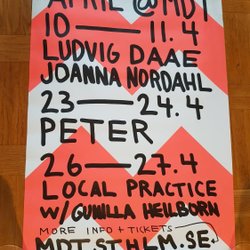 APRIL @ MDT
10 — 11.4
LUDVIG DAAE
JOANNA NORDAHL
23 — 24.4
PETER
26 — 27.4
LOCAL PRACTICE
W/ GUNILLA HEILBORN
MORE INFO + TICKETS —
MDT.STHLM.SE.